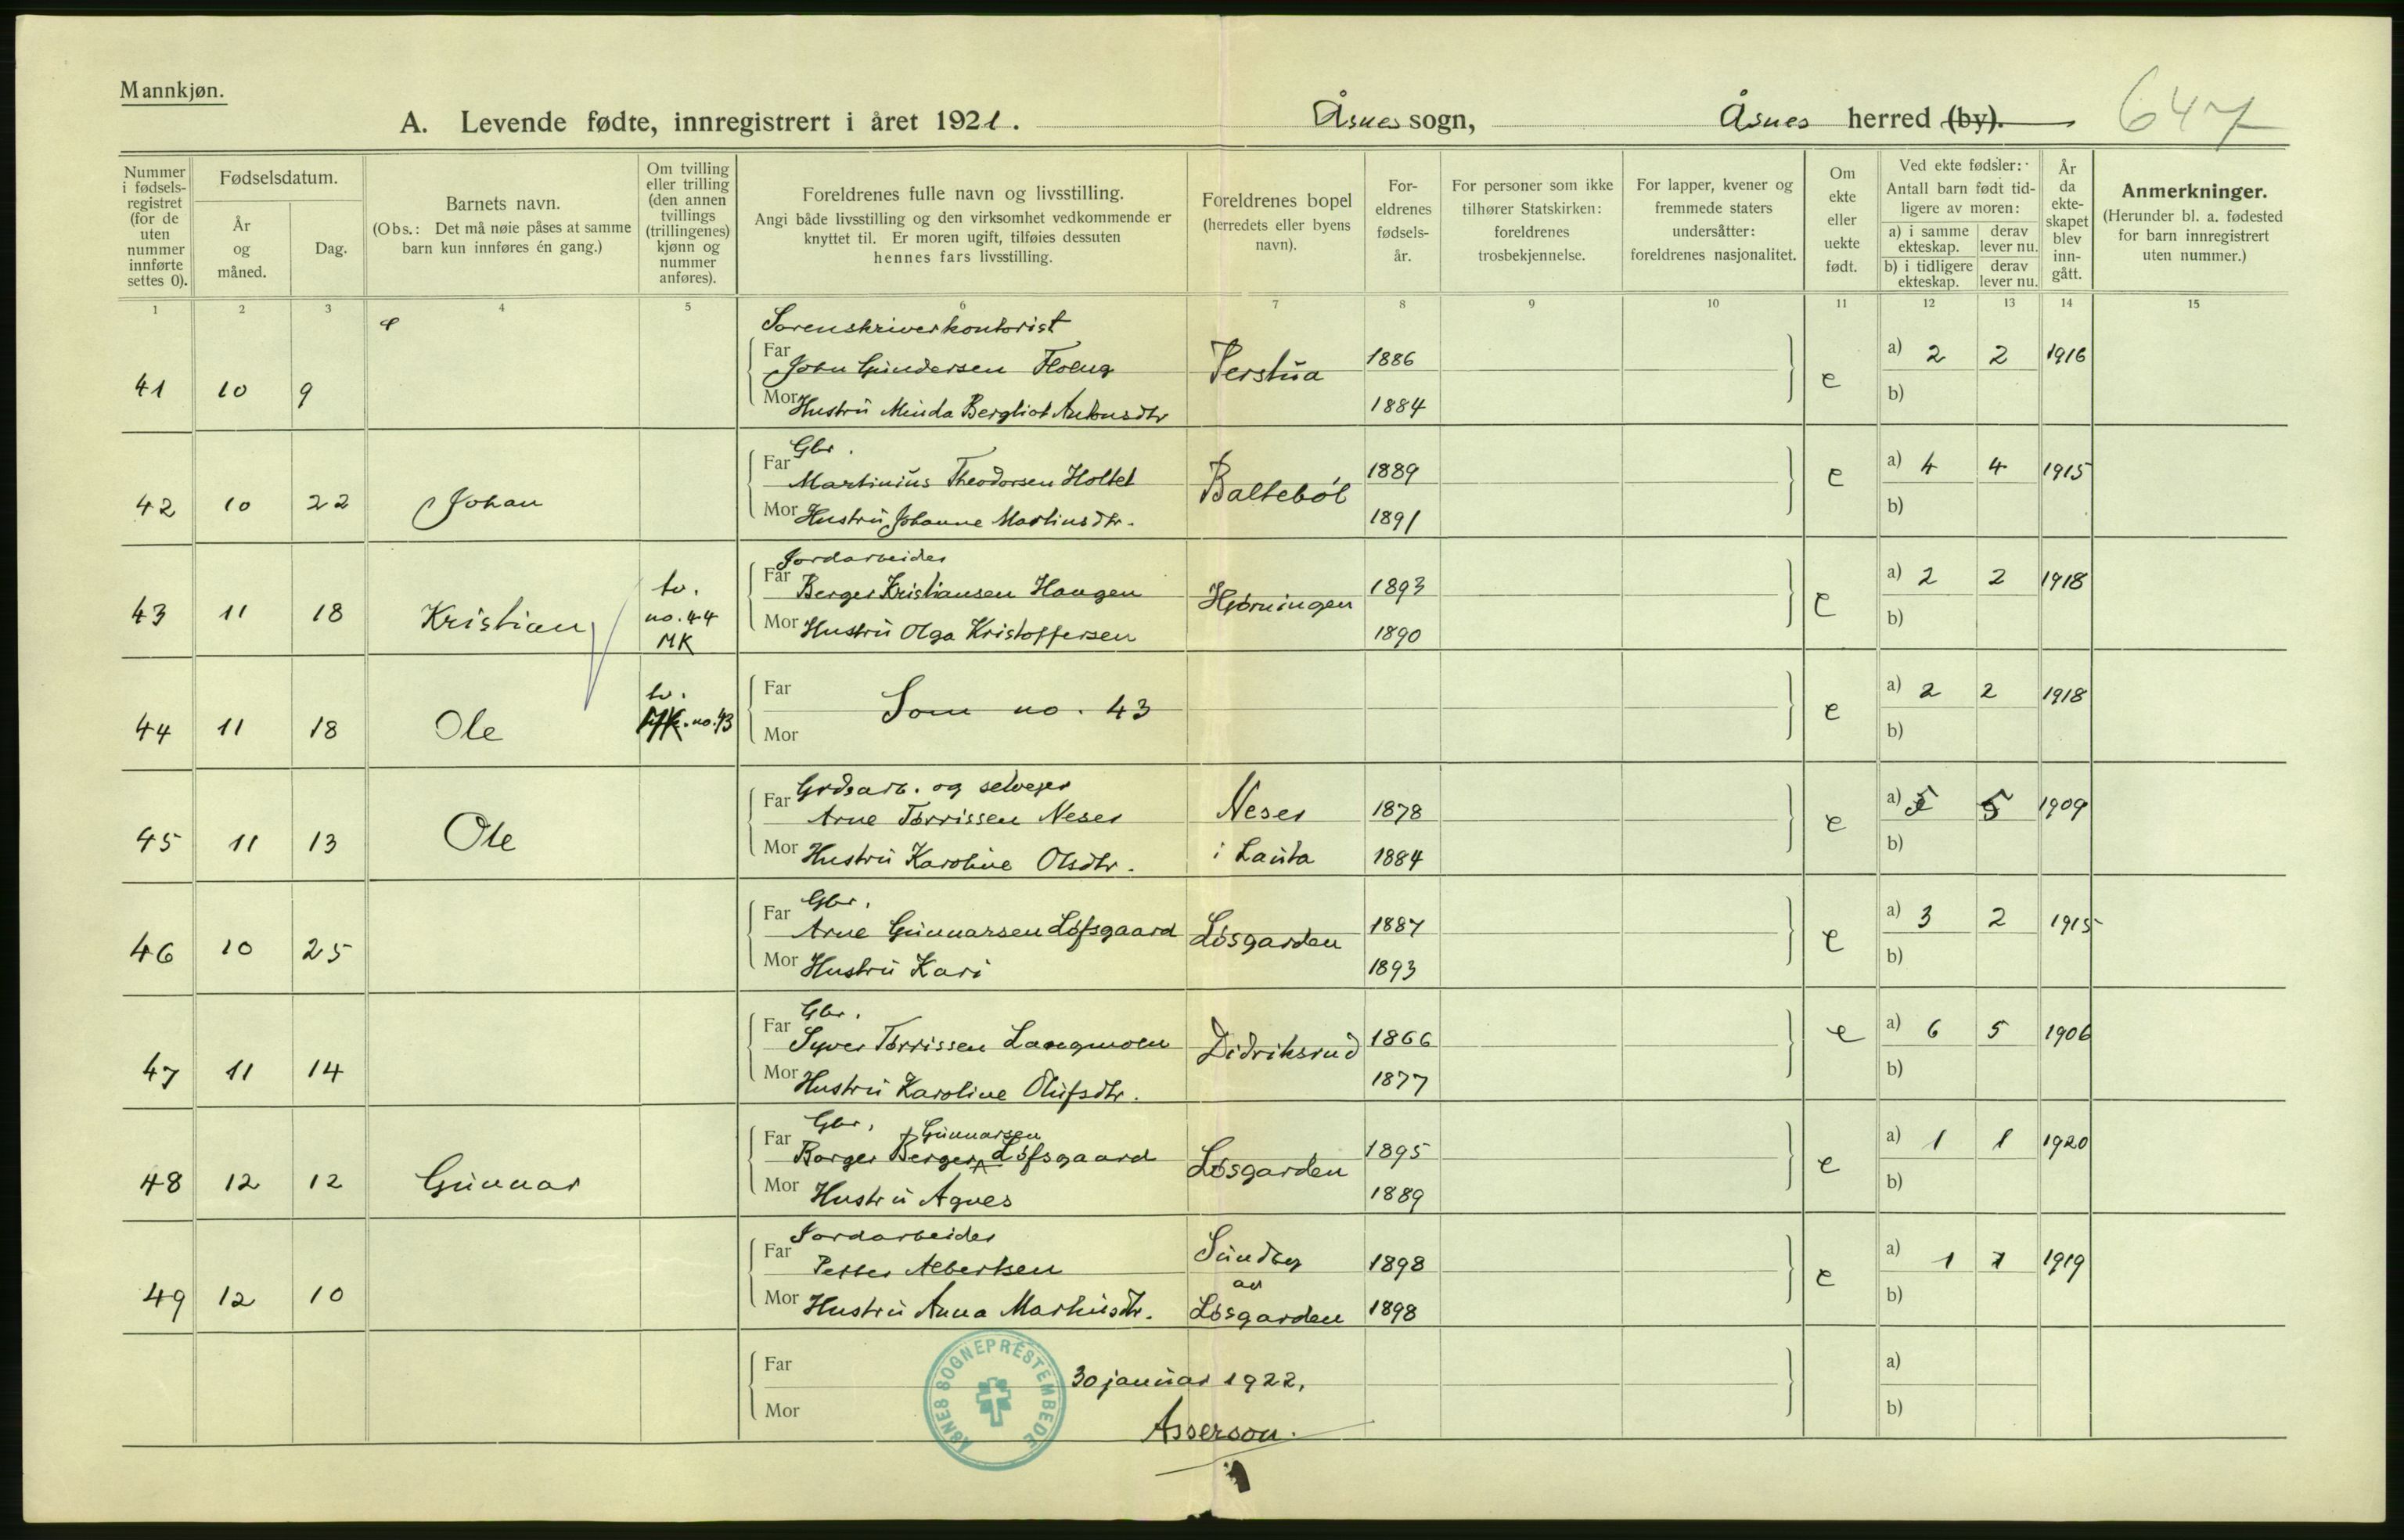 Mannkjøn.
A. Levende fødte, innregistrert i året 1921. Åsnes sogn, Åsnes herred (by). 647
Nummer i fødselsregistret (for de uten nummer innførte settes 0).
Fødselsdatum.
År og måned.
Dag.
Barnets navn.
(Obs.: Det må nøie påses at samme barn kun innføres én gang.)
Om tvilling eller trilling (den annen tvillings (trillingenes) kjønn og nummer anføres).
Foreldrenes fulle navn og livsstilling.
Angi både livsstilling og den virksomhet vedkommende er knyttet til. Er moren ugift, tilføies dessuten hennes fars livsstilling.
Foreldrenes bopel (herredets eller byens navn).
Foreldrenes fødselsår.
For personer som ikke tilhører Statskirken: foreldrenes trosbekjennelse.
For lapper, kvener og fremmede staters undersåtter: foreldrenes nasjonalitet.
Om ekte eller uekte født.
Ved ekte fødsler: Antall barn født tidligere av moren:
a) i samme ekteskap. derav lever nu.
b) i tidligere ekteskap. derav lever nu.
År da ekteskapet blev inngått.
Anmerkninger.
(Herunder bl. a. fødested for barn innregistrert uten nummer.)
1 2 3 4 5 6 7 8 9 10 11 12 13 14 15
Sorenskriverkontorist
41 10 9 Far John Gundersen Perstua 1886 e a) 2 2 1916
Mor Hustru Minda Bergliot Antonsdtr 1884 b)
Gbr.
42 10 22 Johan Far Martinius Theodorsen Holtet Baltebøl 1889 e a) 4 4 1915
Mor Hustru Johanne Martinsdtr. 1891 b)
Jordarbeider
43 11 18 Kristian tv. no. 44 MK Far Berger Kristiansen Haugen Hjørningen 1893 e a) 2 2 1918
Mor Hustru Olga Kristoffersen 1890 b)
44 11 18 Ole tv. MK. no. 43 Far Som no. 43 e a) 2 2 1918
Mor b)
Grdsarb. og selveier
45 11 13 Ole Far Arne Torrissen Neser Neser 1878 e a) 5 5 1909
Mor Hustru Karoline Olsdtr. i Lauta 1884 b)
Gbr.
46 10 25 Far Arne Gunnarsen Løfsgaard Løsgarden 1887 e a) 3 2 1915
Mor Hustru Kari 1893 b)
Gbr.
47 11 14 Far Syver Torrissen Langmoen Didriksrud 1866 e a) 6 5 1906
Mor Hustru Karoline Olufsdtr. 1877 b)
Gbr. Gunnarsen
48 12 12 Gunnar Far Borger Berger Løfsgaard Løsgarden 1895 e a) 1 1 1920
Mor Hustru Agnes 1889 b)
Jordarbeider
49 12 10 Far Petter Albertsen Sundby 1898 e a) 1 1 1919
av
Mor Hustru Anna Marhusdtr. Løsgarden 1898 b)
Far 30 januar 1922. a)
Mor Asserson. b)
ÅSNES SOGNEPRESTEMBEDE